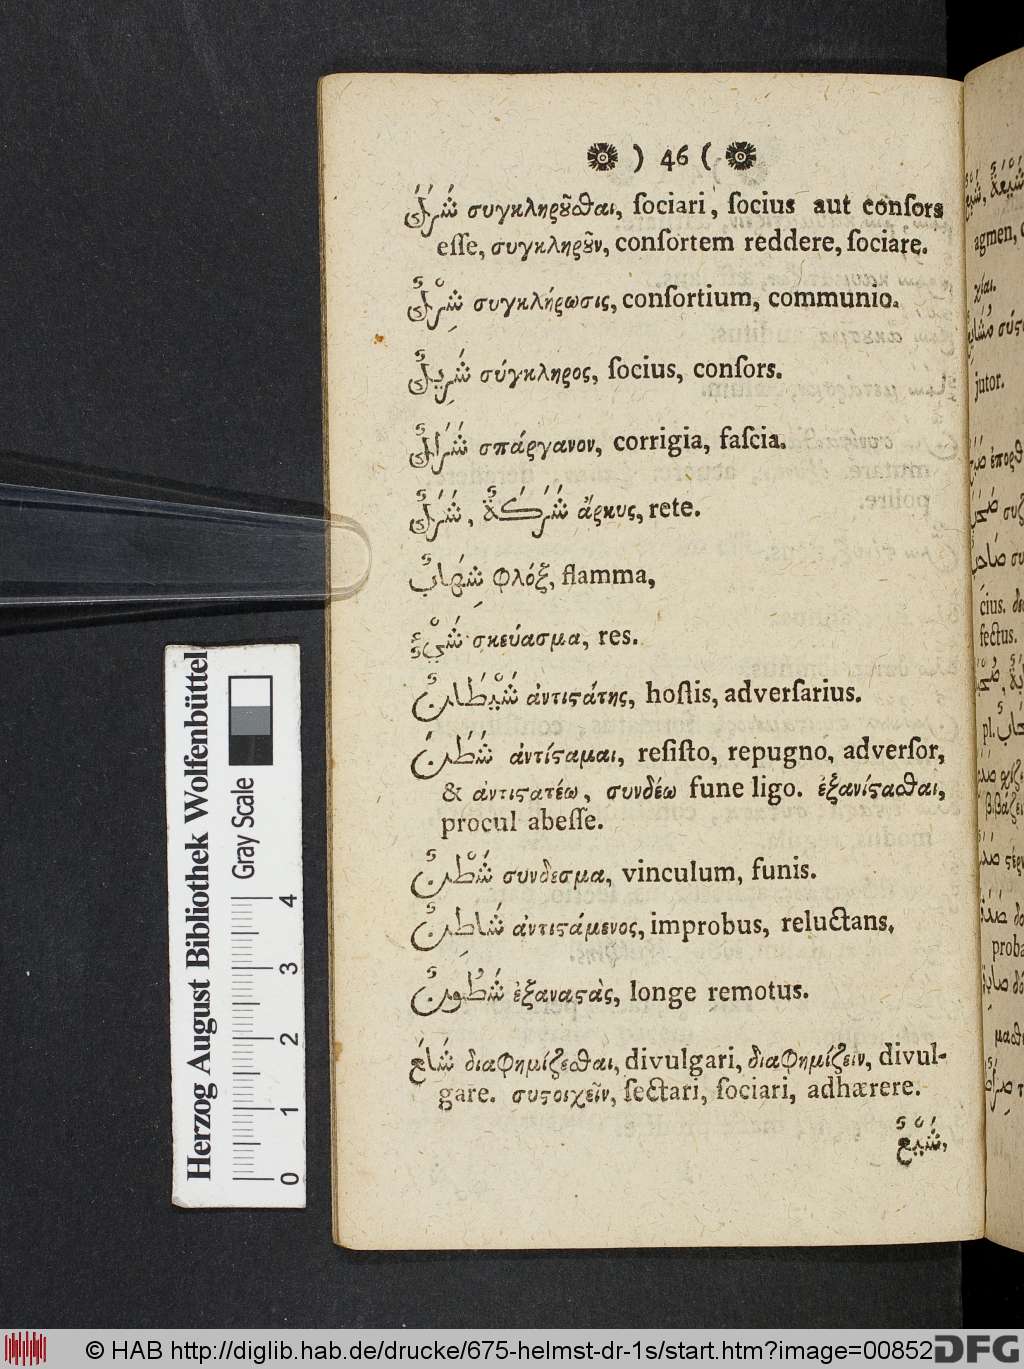 ) 46 (
شَرَكَ συγκληρȣ̃ϑαι, ſociari, ſocius aut conſors
eſſe, συγκληρȣ̃ν, conſortem reddere, ſociare.
شِرْكٌ συγκλήρωσις, conſortium, communio.
شَرِيكٌ σύγκληρος, ſocius, conſors.
شَرَاكٌ σπάργανον, corrigia, faſcia.
شَرَكٌ, شَرَكَةٌ ἄρκυς, rete.
شِهَابٌ φλόξ, flamma,
شَيْءٌ σκεύασμα, res.
شَيْطَانٌ ἀντιϛάτης, hoſtis, adverſarius.
شَطَنَ ἀντίϛαμαι, reſiſto, repugno, adverſor,
& ἀντιϛατέω, συνδέω fune ligo. ἐξανίϛαϑαι,
procul abeſſe.
شَطْنٌ συνδεσμα, vinculum, funis.
شَاطِنٌ ἀντιϛάμενος, improbus, reluctans.
شَطُونٌ ἐξαναϛὰς, longe remotus.
شَاعَ διαφημίζεϑαι, divulgari, διαφημίζειν, divul-
gare. συϛοιχεῖν, ſectari, ſociari, adhærere.
شيع,
agmen,
jutor.
cius.
fectus.
pl.
proba
Herzog August Bibliothek Wolfenbüttel
Gray Scale
0 1 2 3 4
© HAB http://diglib.hab.de/drucke/675-helmst-dr-1s/start.htm?image=00852
DFG